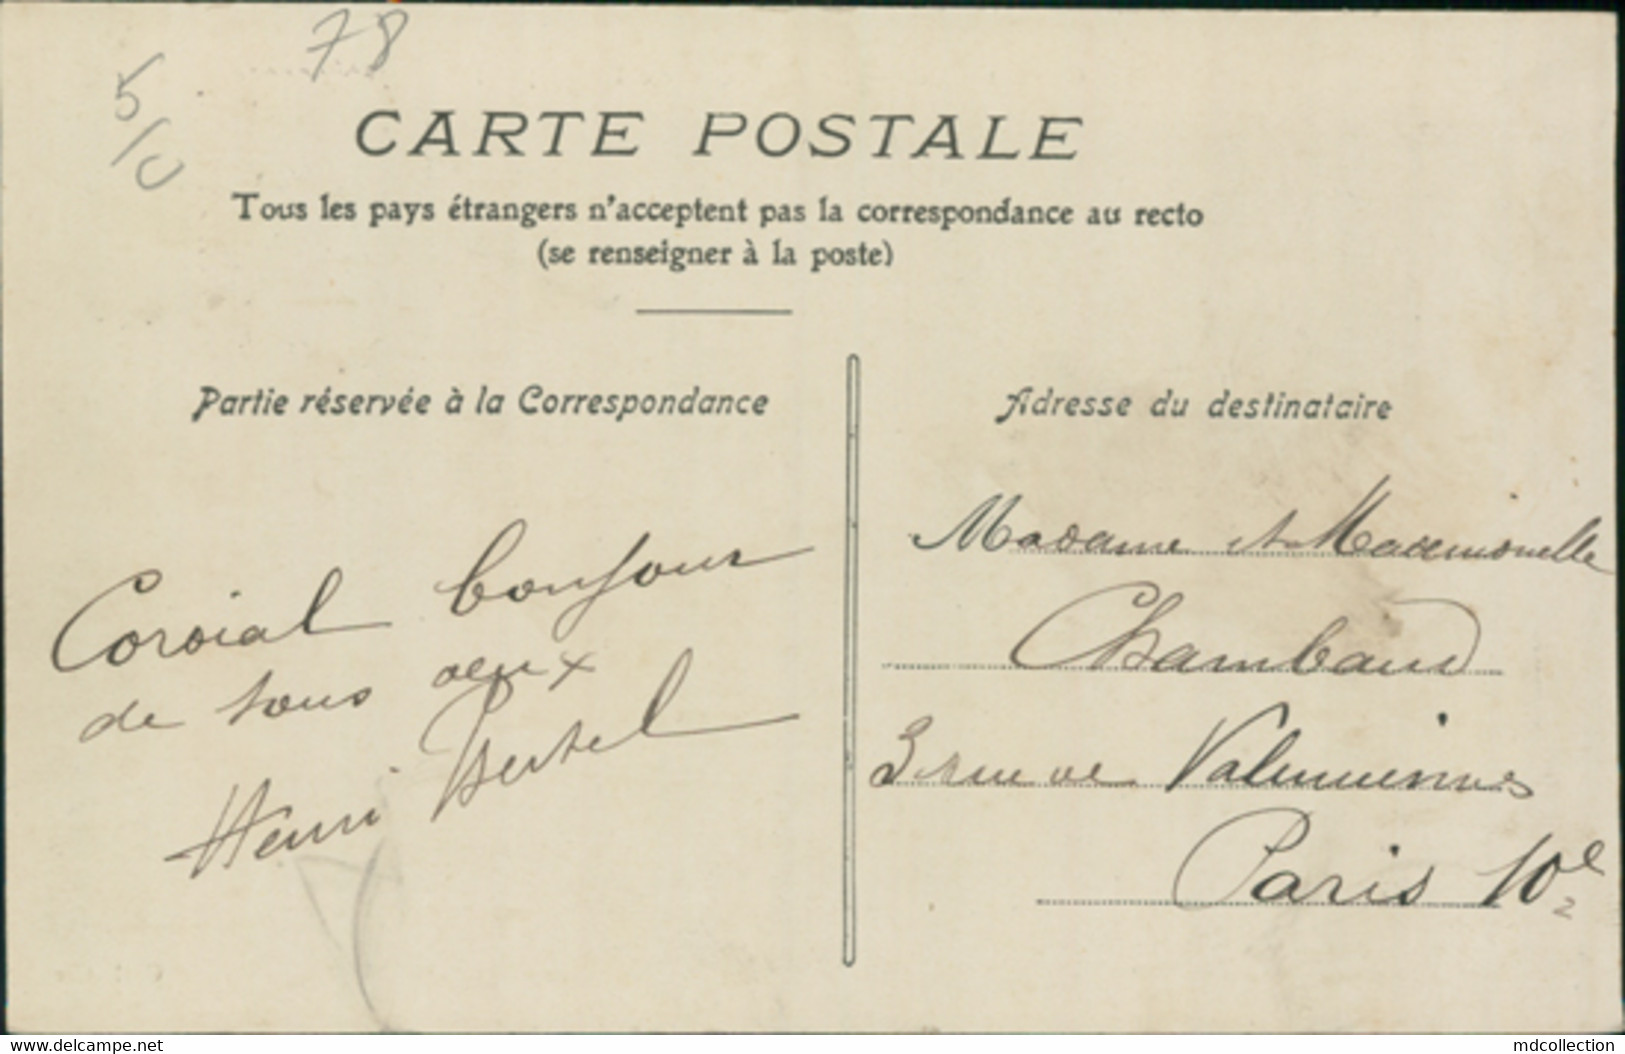 78
5/c
CARTE POSTALE
Tous les pays étrangers n'acceptent pas la correspondance au recto
(se renseigner à la poste)
Partie réservée à la Correspondance
Cordial bonjour
de tous deux
Henri
Adresse du destinataire
Madame et Mademoiselle
Chambaud
3 rue de Valenciennes
Paris 10e
www.delcampe.net
mdcollection